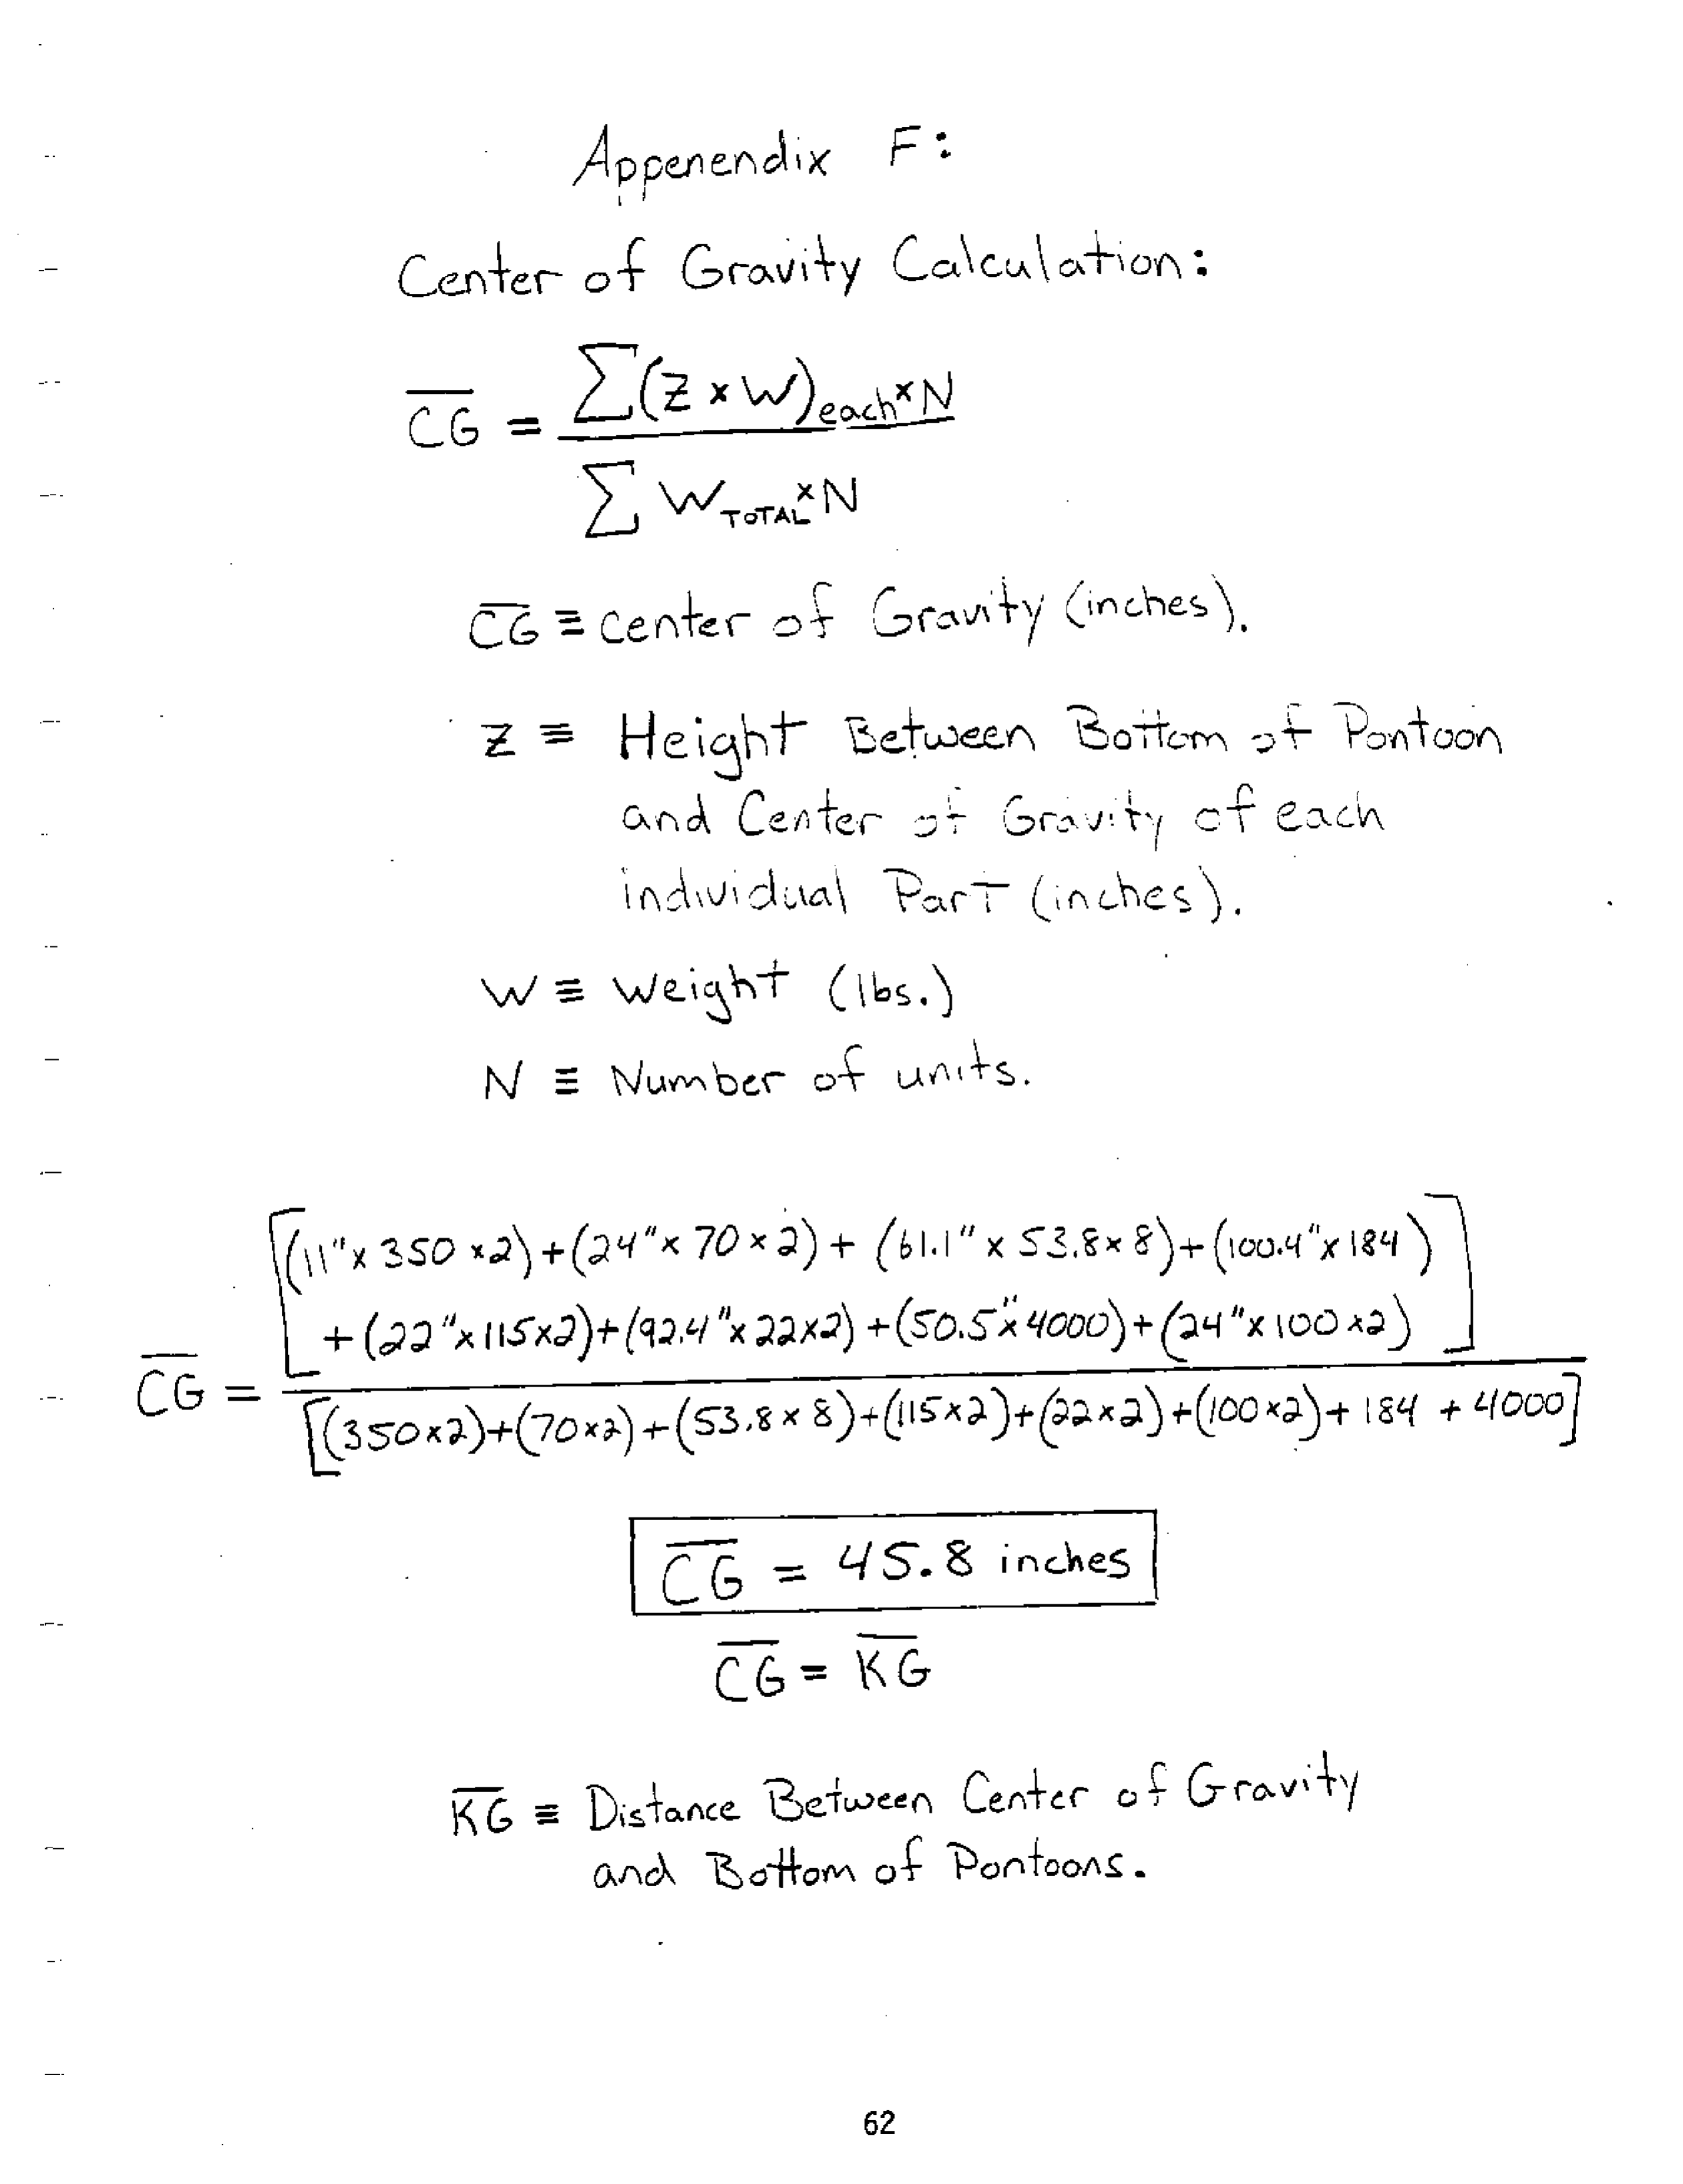 Appenendix F:
Center of Gravity Calculation:
C̅G̅ = Σ(Z x W)each x N
Σ W TOTAL x N
C̅G̅ ≡ center of Gravity (inches).
Z ≡ Height Between Bottom of Pontoon
and Center of Gravity of each
individual Part (inches).
W ≡ Weight (lbs.)
N ≡ Number of units.
[(11" x 350 x 2) + (24" x 70 x 2) + (61.1" x 53.8 x 8) + (100.4" x 184)
+ (22" x 115 x 2) + (92.4" x 22 x 2) + (50.5" x 4000) + (24" x 100 x 2)]
C̅G̅ =
[(350 x 2) + (70 x 2) + (53.8 x 8) + (115 x 2) + (22 x 2) + (100 x 2) + 184 + 4000]
C̅G̅ = 45.8 inches
C̅G̅ = K̅G̅
K̅G̅ ≡ Distance Between Center of Gravity
and Bottom of Pontoons.
62